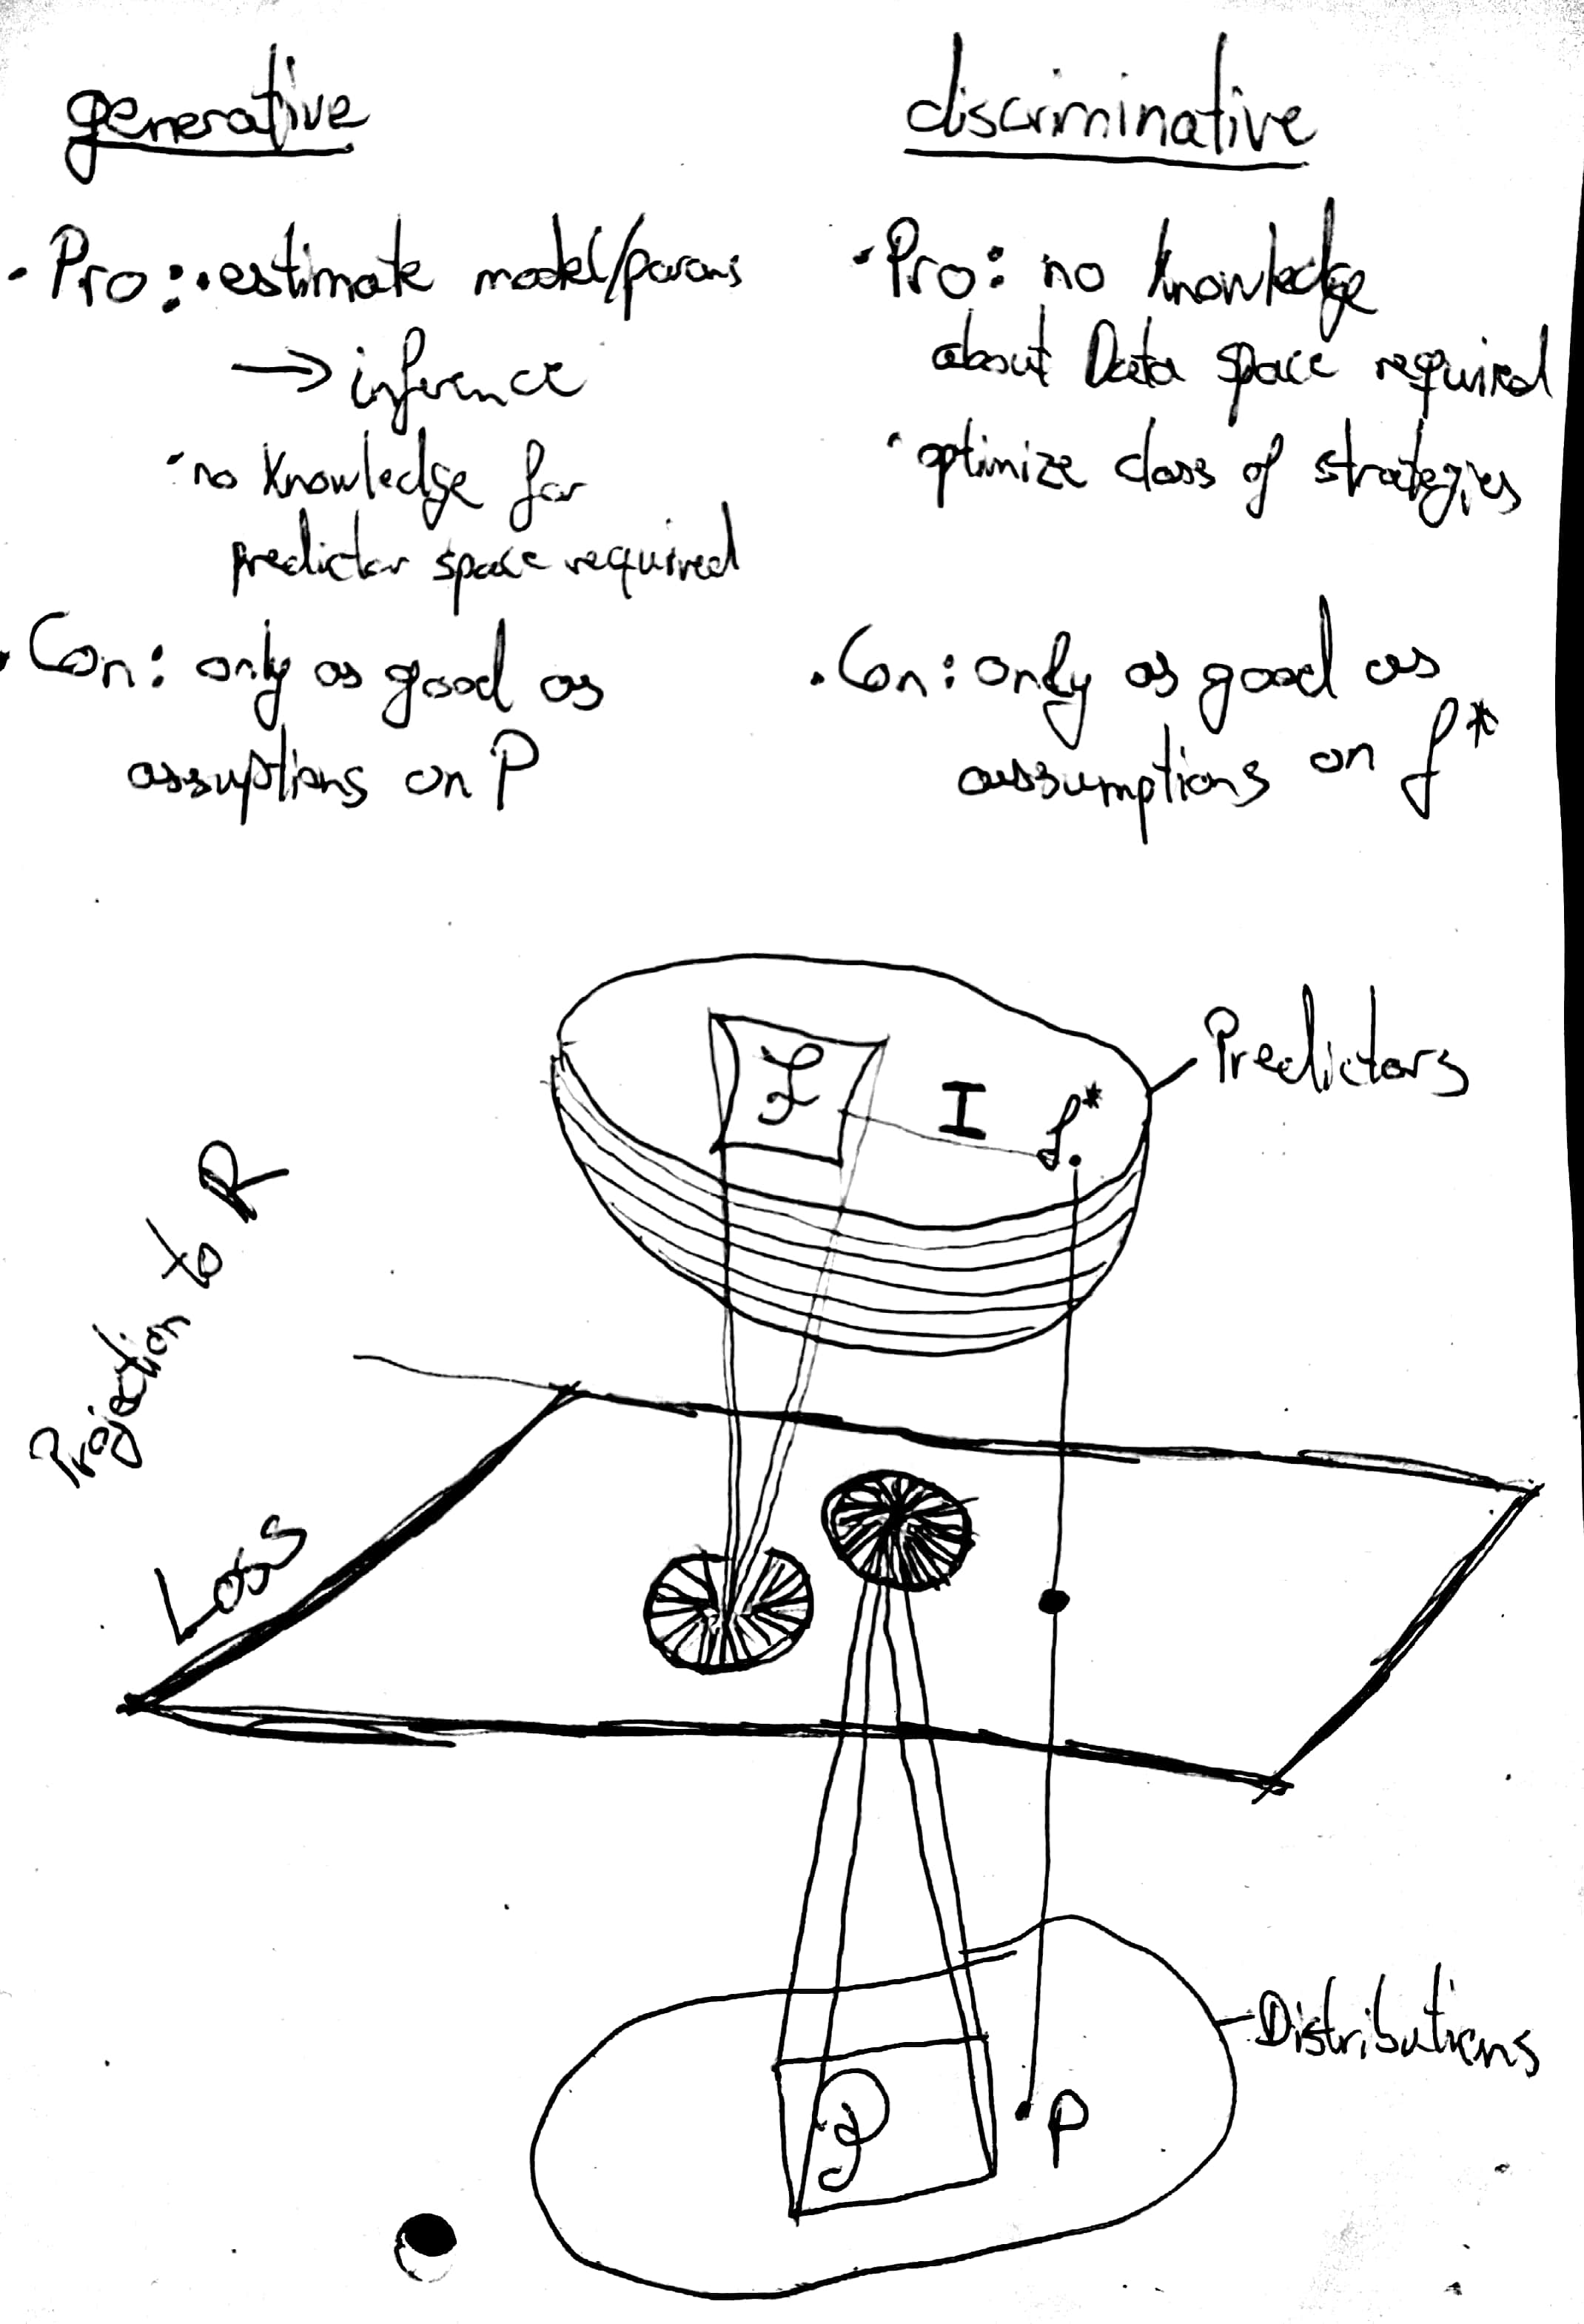 generative
· Pro: · estimate model/params
→ inference
· no knowledge for
predictor space required
· Con: only as good as
assuptions on P
discriminative
· Pro: no knowledge
about Data space required
· optimize class of strategies
· Con: only as good as
assumptions on f*
Predictors
F I f*
Projection to R
Loss
Distributions
P P